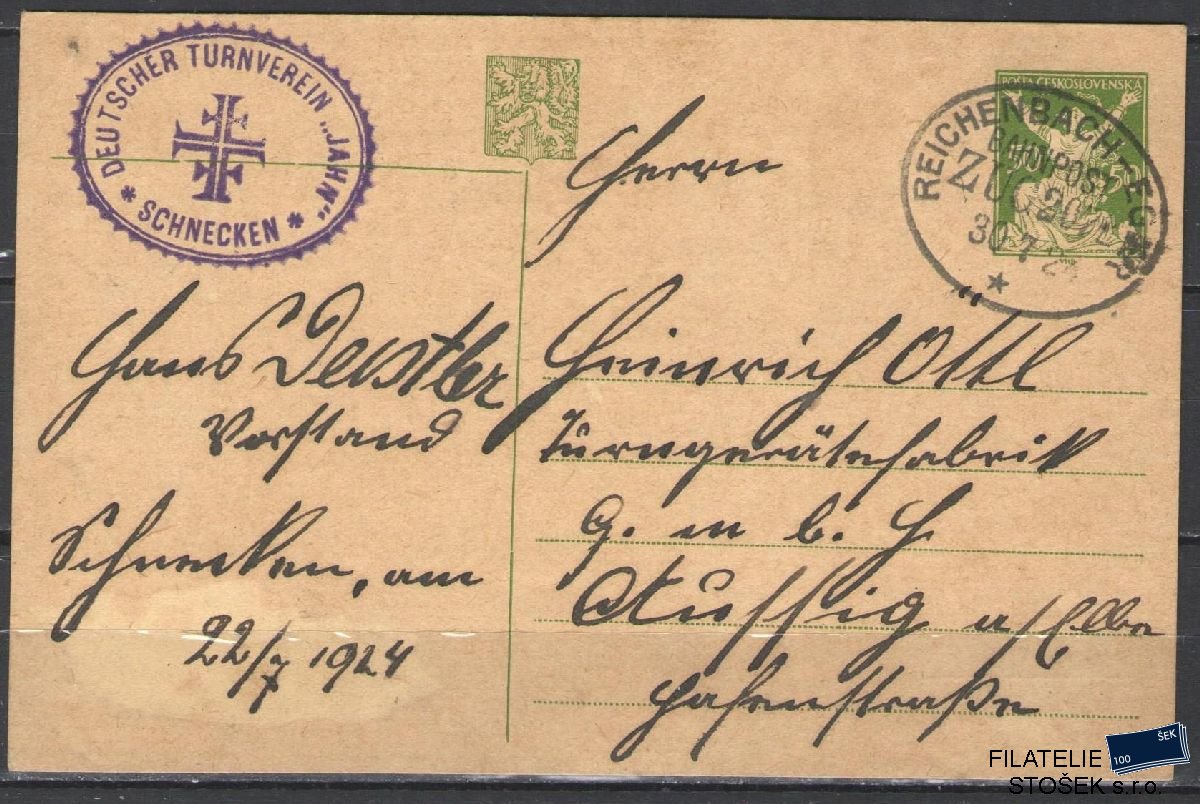 DEUTSCHER TURNVEREIN „JAHN“
* SCHNECKEN *
POŠTA ČESKOSLOVENSKÁ
REICHENBACH-EGER
BAHNPOST
ZUG
30 7 24
Herrn
Heinrich Ottl
Turngerätefabrik
G. m. b. H.
Aussig a/Elbe
Hafenstraße
Hans
Vorstand
Schnecken, am
22/7 1924
FILATELIE
STOŠEK s.r.o.
100
ŠEK